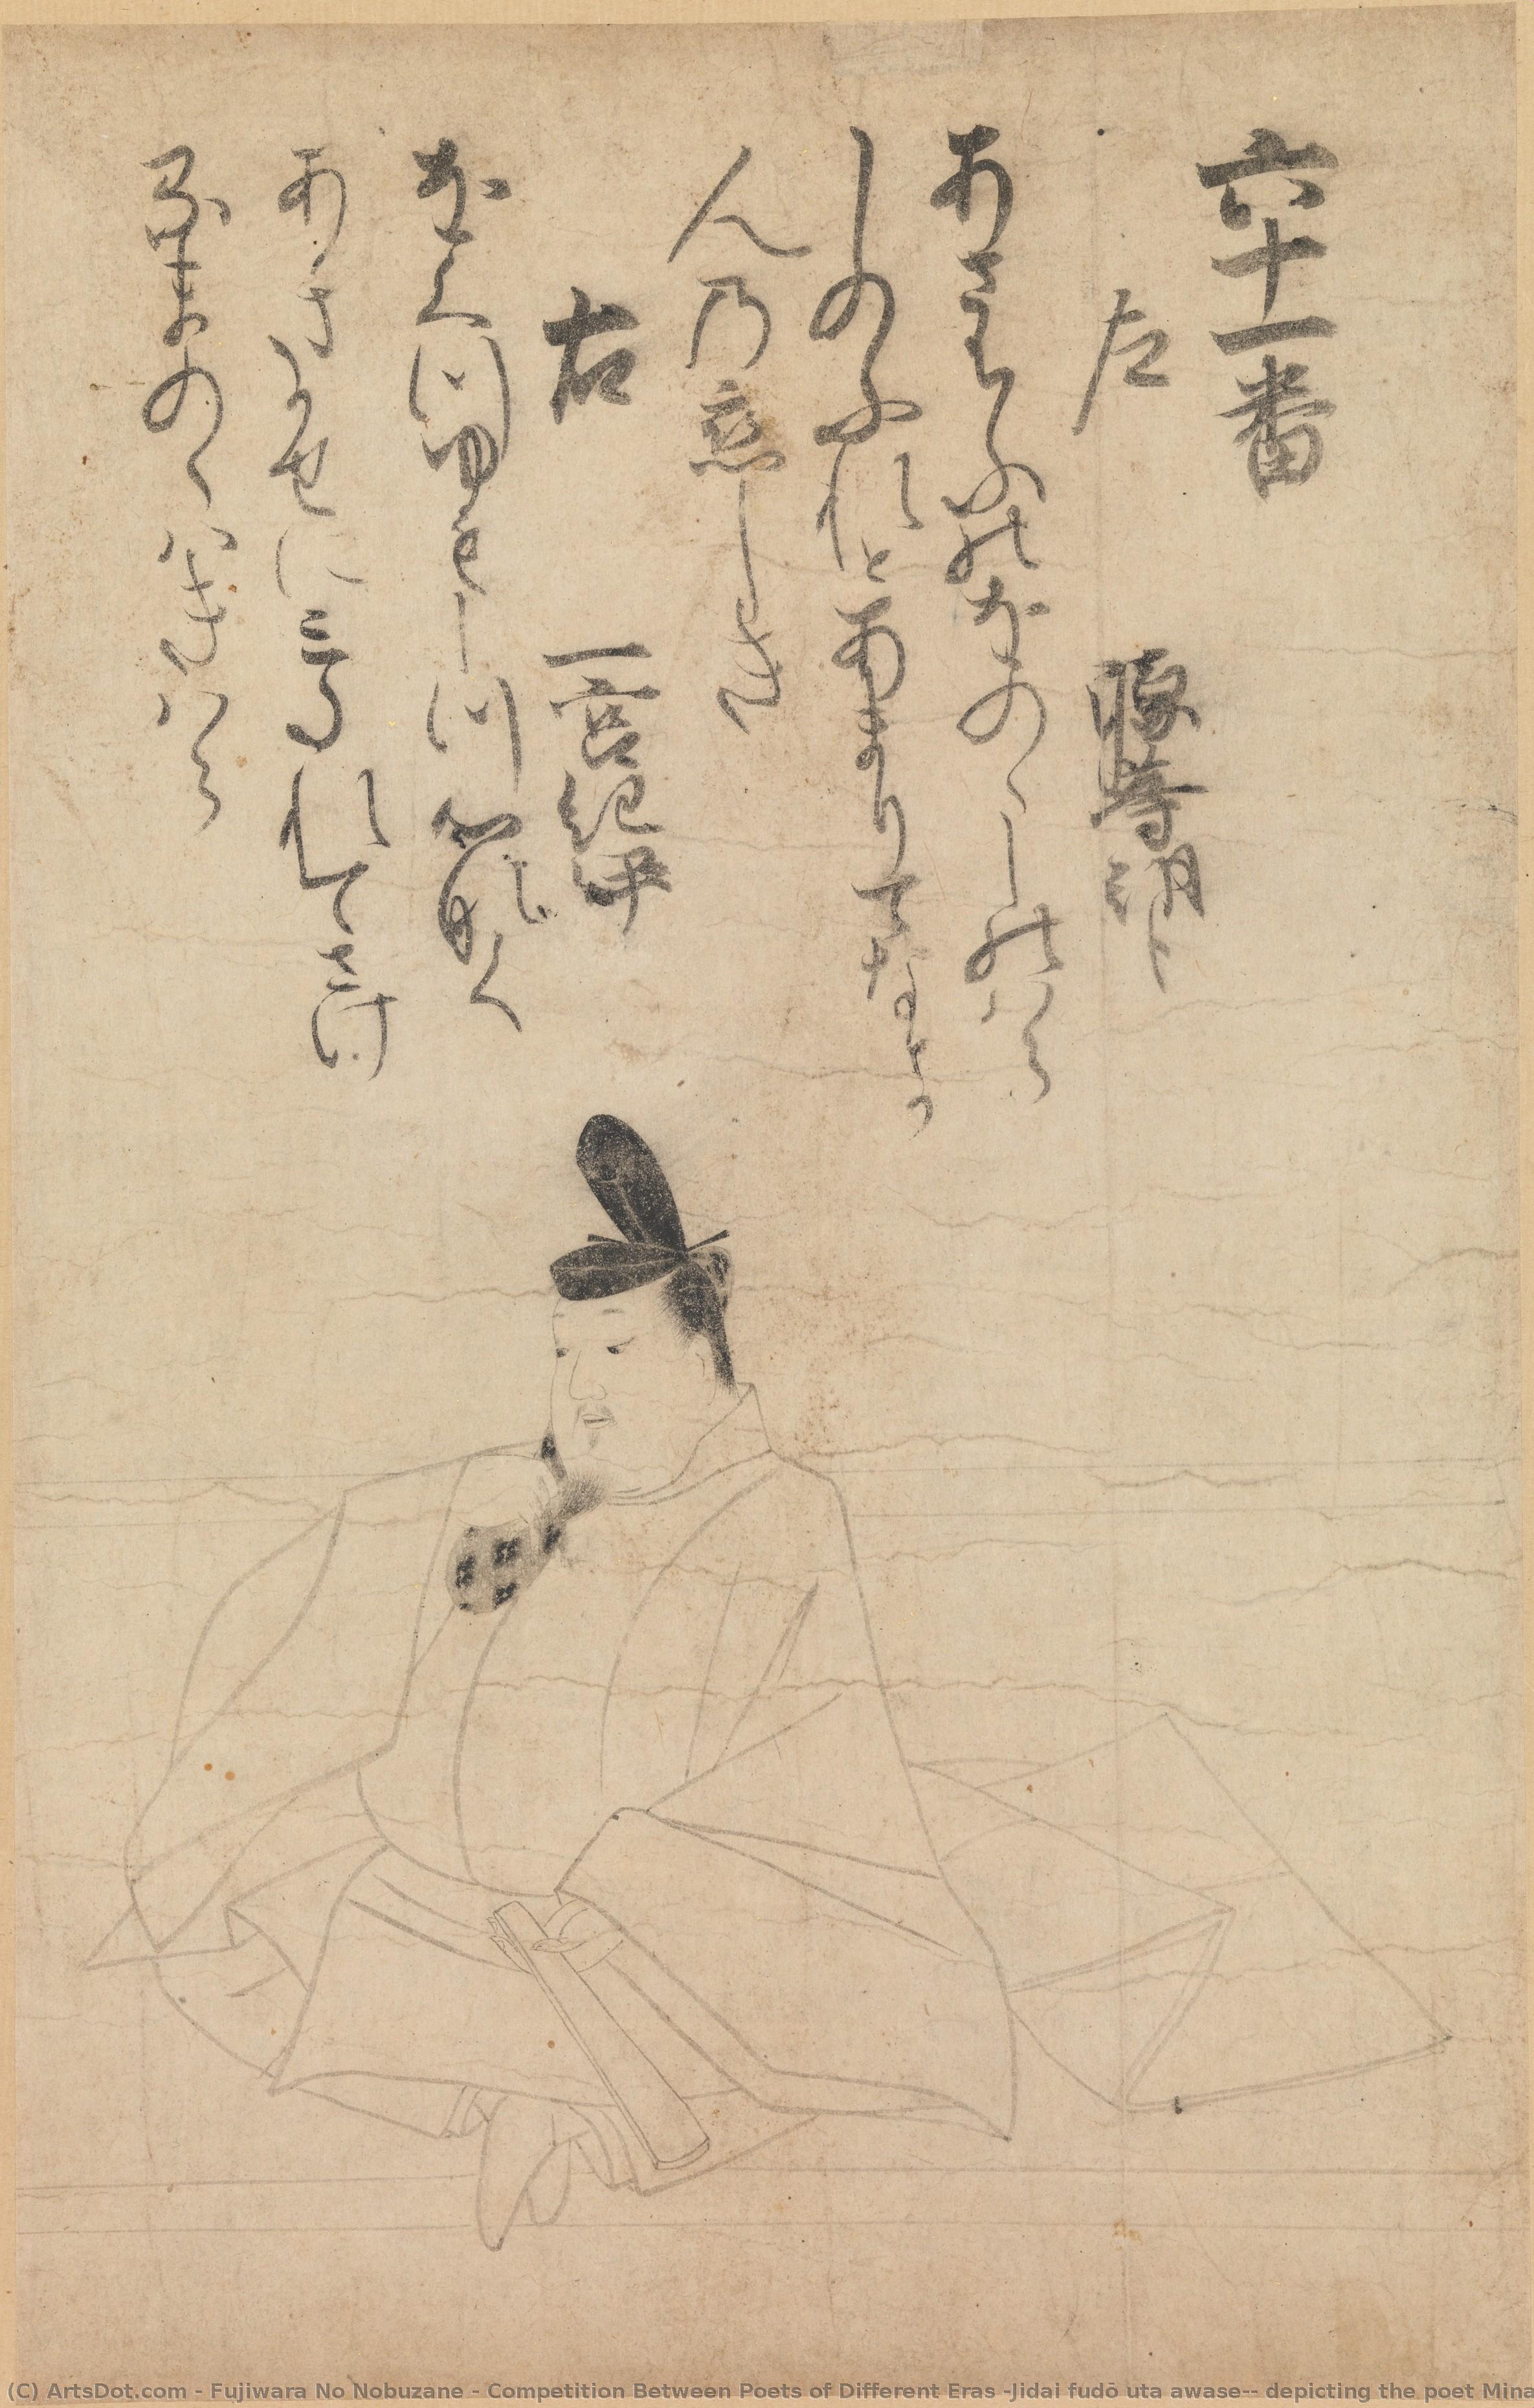 六十一番
左 源等朝臣
あさちふのをのゝしのはら
しのふれとあまりてなとか
人乃恋しき
右 一宮紀伊
をくつゆもしつ心なく
あきかせにみたれてさけ
るまのゝはきはら
(C) ArtsDot.com - Fujiwara No Nobuzane - Competition Between Poets of Different Eras -Jidai fudō uta awase-- depicting the poet Mina